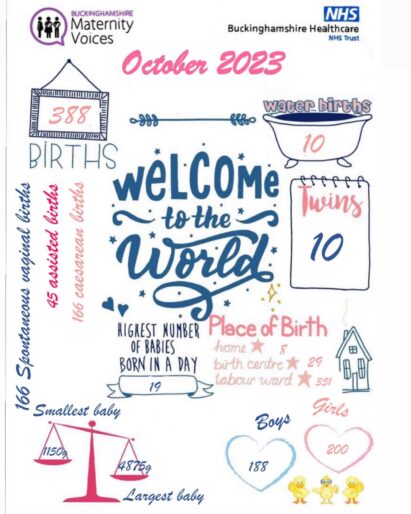 BUCKINGHAMSHIRE
Maternity
Voices
NHS
Buckinghamshire Healthcare
NHS Trust
October 2023
388
BIRTHS
water births
10
Twins
10
WELCOME
to the
World
166 Spontaneous vaginal births
45 assisted births
166 caesarean births
HIGHEST NUMBER
OF BABIES
BORN IN A DAY
19
Place of Birth
home 8
birth centre 29
labour ward 351
Smallest baby
1150g
4875g
Largest baby
Boys
188
Girls
200